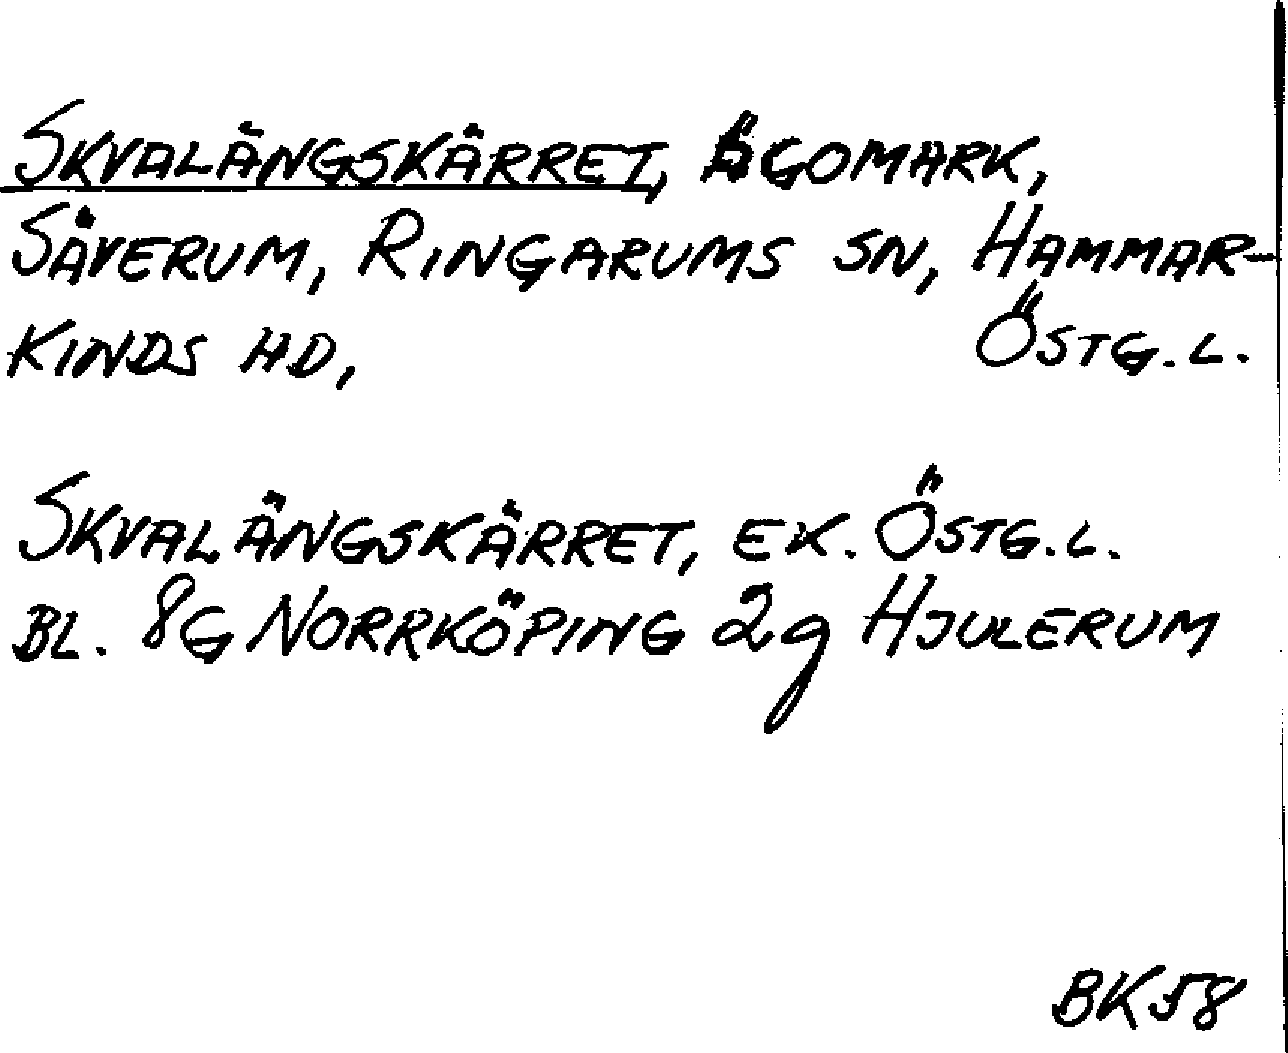 SKVALÄNGSKÄRRET, ÄGOMARK,
SÄVERUM, RINGARUMS SN, HAMMAR-
KINDS HD, ÖSTG. L.
SKVALÄNGSKÄRRET, EK. ÖSTG. L.
BL. 8G NORRKÖPING 2g HJULERUM
BK58